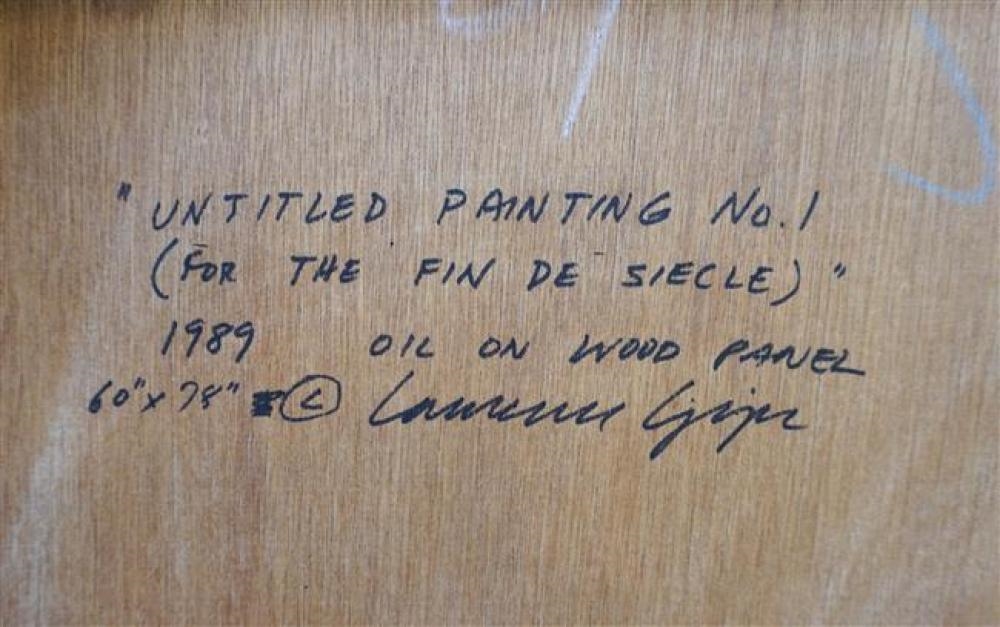 "UNTITLED PAINTING No. 1
(FOR THE FIN DE SIECLE)"
1989 OIL ON WOOD PANEL
60" x 78" © Lawrence Gipe